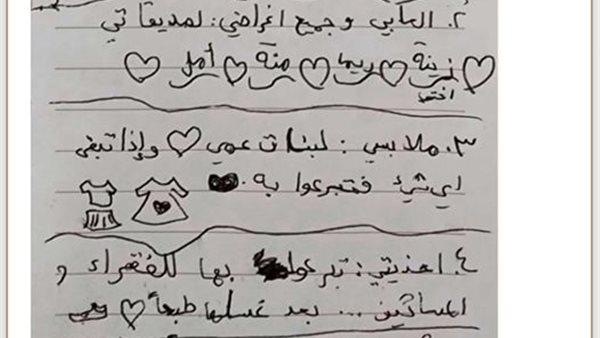 ٢. العابي و جميع اغراضي: لصديقاتي
زينة ريما منة أمل
اختي
٣. ملابسي: لبنات عمي وإذا تبقى
اي شيء فتبرعوا به.
٤. احذيتي: تبرعوا بها للفقراء و
المساكين... بعد غسلها طبعاً